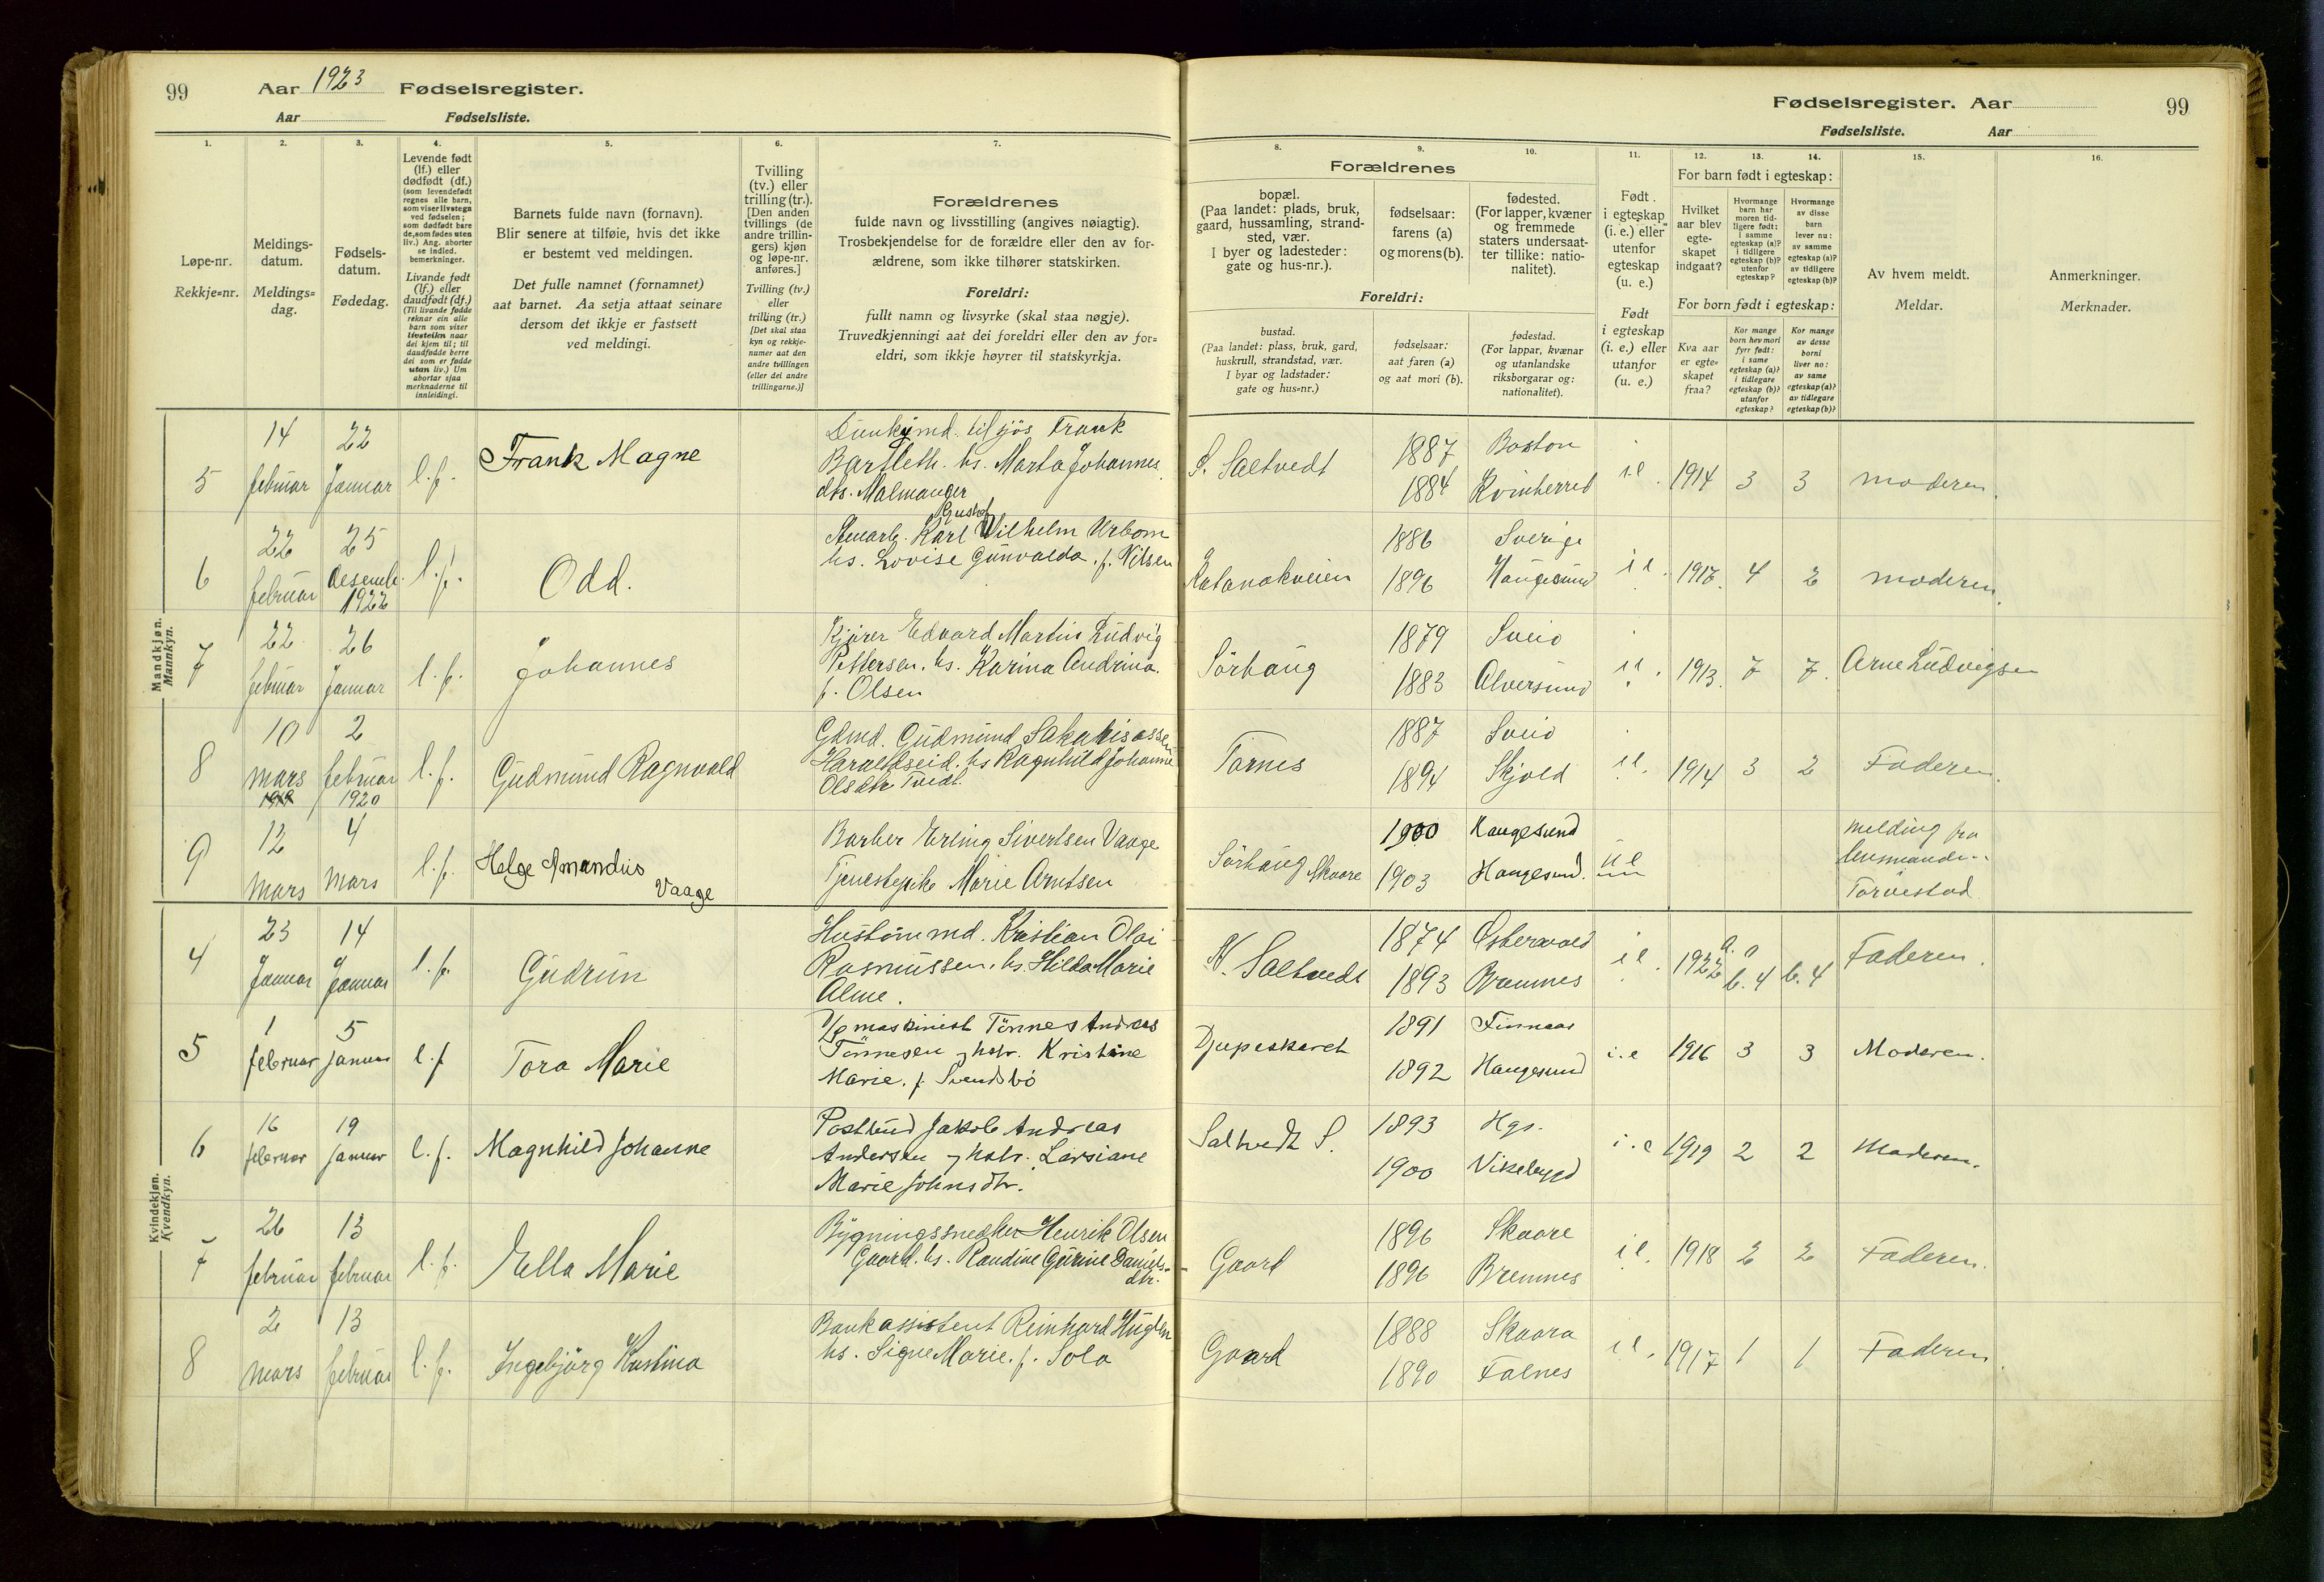 99
Aar 1923 Fødselsregister.
Aar Fødselsliste.
Fødselsregister. Aar
99
Fødselsliste. Aar
1.
Løpe-nr.
Rekkje=nr.
2.
Meldings-
datum.
Meldings=
dag.
3.
Fødsels-
datum.
Fødedag.
4.
Levende født
(lf.) eller
dødfødt (df.)
(som levendefødt
regnes alle barn,
som viser livstegn
ved fødselen;
som dødfødt bare
de, som fødes uten
liv.) Ang. aborter
se indled.
bemerkninger.
Livande født
(lf.) eller
daudfødt (df.)
(Til livande fødde
reknar ein alle
born som viser
livsteikn naar
dei kjem til; til
daudfødde berre
dei som er fødde
utan liv.) Um
abortar sjaa
merknaderne til
innleidingi.
5.
Barnets fulde navn (fornavn).
Blir senere at tilføie, hvis det ikke
er bestemt ved meldingen.
Det fulle namnet (fornamnet)
aat barnet. Aa setja attaat seinare
dersom det ikkje er fastsett
ved meldingi.
6.
Tvilling
(tv.) eller
trilling (tr.).
[Den anden
tvillings (de
andre trillin-
gers) kjøn
og løpe-nr.
anføres.]
Tvilling (tv.)
eller
trilling (tr.)
[Det skal staa
kyn og rekkje-
numer aat den
andre tvillingen
(eller dei andre
trillingarne.)]
7.
Forældrenes
fulde navn og livsstilling (angives nøiagtig).
Trosbekjendelse for de forældre eller den av for-
ældrene, som ikke tilhører statskirken.
Foreldri:
fullt namn og livsyrke (skal staa nøgje).
Truvedkjenningi aat dei foreldri eller den av for=
eldri, som ikkje høyrer til statskyrkja.
Forældrenes
8.
bopæl.
(Paa landet: plads, bruk,
gaard, hussamling, strand-
sted, vær.
I byer og ladesteder:
gate og hus-nr.).
Foreldri:
bustad.
(Paa landet: plass, bruk, gard,
huskrull, strandstad, vær.
I byar og ladstader:
gate og hus=nr.)
9.
fødselsaar:
farens (a)
og morens (b).
fødselsaar:
aat faren (a)
og aat mori (b).
10.
fødested.
(For lapper, kvæner
og fremmede
staters undersaat-
ter tillike: natio-
nalitet).
fødestad.
(For lappar, kvænar
og utanlandske
riksborgarar og:
nationalitet).
11.
Født
i egteskap
(i. e.) eller
utenfor
egteskap
(u. e.)
Født
i egteskap
(i. e.) eller
utanfor
(u. e.)
For barn født i egteskap:
12.
Hvilket
aar blev
egte-
skapet
indgaat?
For born født i egteskap:
Kva aar
er egte-
skapet
fraa?
13.
Hvormange
barn har
moren tid-
ligere født:
i samme
egteskap (a)?
i tidligere
egteskap (b)?
utenfor
egteskap?
Kor mange
born hev mori
fyrr født:
i same
egteskap (a)?
i tidlegare
egteskap (b)?
utanfor
egteskap?
14.
Hvormange
av disse
barn
lever nu:
av samme
egteskap (a)?
av tidligere
egteskap (b)?
Kor mange
av desse
borni
liver no:
av same
egteskap (a)?
av tidlegare
egteskap (b)?
15.
Av hvem meldt.
Meldar.
16.
Anmerkninger.
Merknader.
Mandkjøn.
Mannkyn.
5 14 februar 22 Januar l.f. Frank Magne
til sjös Frank
Bartleth. hs. Marta Johannes
dtr. Malmanger
S. Saltvedt 1887 Boston
1884 Kvinherred
i e. 1914 3 3 moderen.
6 22 februar 25 Desemb. 1922 l.f. Odd.
Gustaf
Karl Vilhelm Urbom
hs. Lovise Gunvalda. f. Nilsen
1886 Sverige
1896 Haugesund
i e. 1917. 4 2 moderen.
7 22 februar 26 Januar l.f. Johannes
Kjører Edvard Martin Ludvig
Pettersen. hs. Karina Andrina.
f. Olsen
Sörhaug 1879 Sveio
1883 Alversund
i e. 1913. 7 7. Arne Ludvigsen
8 10 mars 1919 2 februar 1920 l.f. Gudmund Ragnvald
Gdmd. Gudmund Sakariassen
Haraldseid. hs Ragnhild Johanne
Olsdtr Tvedt.
Tornes 1887 Sveio
1894 Skjold
i e. 1914 3 2 Faderen.
9 12 mars 4 mars l.f. Helge Amandus
Vaage
Barber Erling Sivertsen Vaage
Tjenestepike Marie Arntsen
Sörhaug Skaare 1900 Haugesund
1903 Haugesund.
u e
melding fra
lensmanden
Torvestad
Kvindekjøn.
Kvendkyn.
4 23 Januar 14 Januar l.f. Gudrun
Hustömmd. Kristian Olai
Rasmussen. hs. Hilda Marie
Alme.
N. Saltvedt 1874 Östervold
1893 Bremnes
i e. 1922 a. 0 b. 4 b. 4 Faderen.
5 1 februar 5 januar l.f Tora Marie
maskinist Tönnes Andreas
Tönnesen og hstr. Kristine
Marie. f. Svendsbö
Djupeskaret 1891 Finnaas
1892 Haugesund
i.e 1916 3 3 Moderen.
6 16 februar 19 januar l.f. Magnhild Johanne
Postbud Jakob Andreas
Andersen og hstr. Larsiane
Marie Johnsdtr.
Saltvedt S. 1893 Hgs.
1900 Vikebygd
i.e 1919 2 2 Moderen.
7 26 februar 13 februar l.f. Ella Marie
Bygningssnedker Henrik Olsen
Gaard. hs. Randine Gurine Daniels-
dtr.
Gaard 1896 Skaare
1896 Bremnes
i e. 1918 2 2 Faderen.
8 2 mars 13 februar l.f. Ingebjörg Kristina
Bankassistent Reinhard Huglen
hs. Signe Marie. f. Sola
Gaard 1888 Skaara
1890 Falnes
i e. 1917 1 1 Faderen.